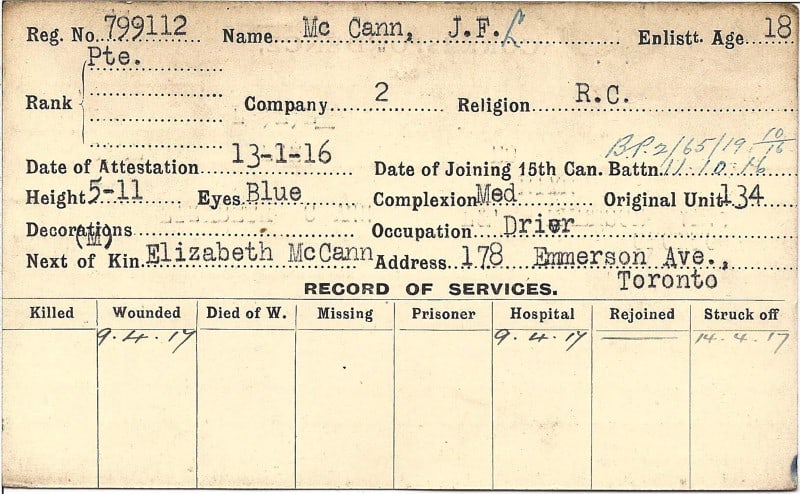 Reg. No. 799112 Name Mc Cann, J.F. Enlistt. Age 18
Pte.
Rank Company 2 Religion R.C.
B.P. 2/65/19 10/16
Date of Attestation 13-1-16 Date of Joining 15th Can. Battn. 11.10.16
Height 5-11 Eyes Blue Complexion Med Original Unit 134
Decorations Occupation Drier
(M)
Next of Kin Elizabeth McCann Address 178 Emmerson Ave.,
Toronto
RECORD OF SERVICES.
Killed Wounded Died of W. Missing Prisoner Hospital Rejoined Struck off
9.4.17 9.4.17 14.4.17